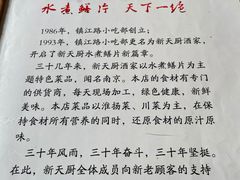 水煮鳝片 天下一绝
1986年，镇江路小吃部创立；
1993年，镇江路小吃部更名为新天厨酒家，
开启了新天厨水煮鳝片新篇章。
三十几年来，新天厨酒家以水煮鳝片为主
题特色菜品，闻名南京。本店的食材有专门
的供货商，每天现场加工，绿色健康，新鲜
美味。本店菜品以淮扬菜、川菜为主，在保
持食材所有营养的同时，还原食材的原汁原
味。
三十年风雨，三十年奋斗，三十年坚挺。
在此，新天厨全体成员向新老顾客的支持